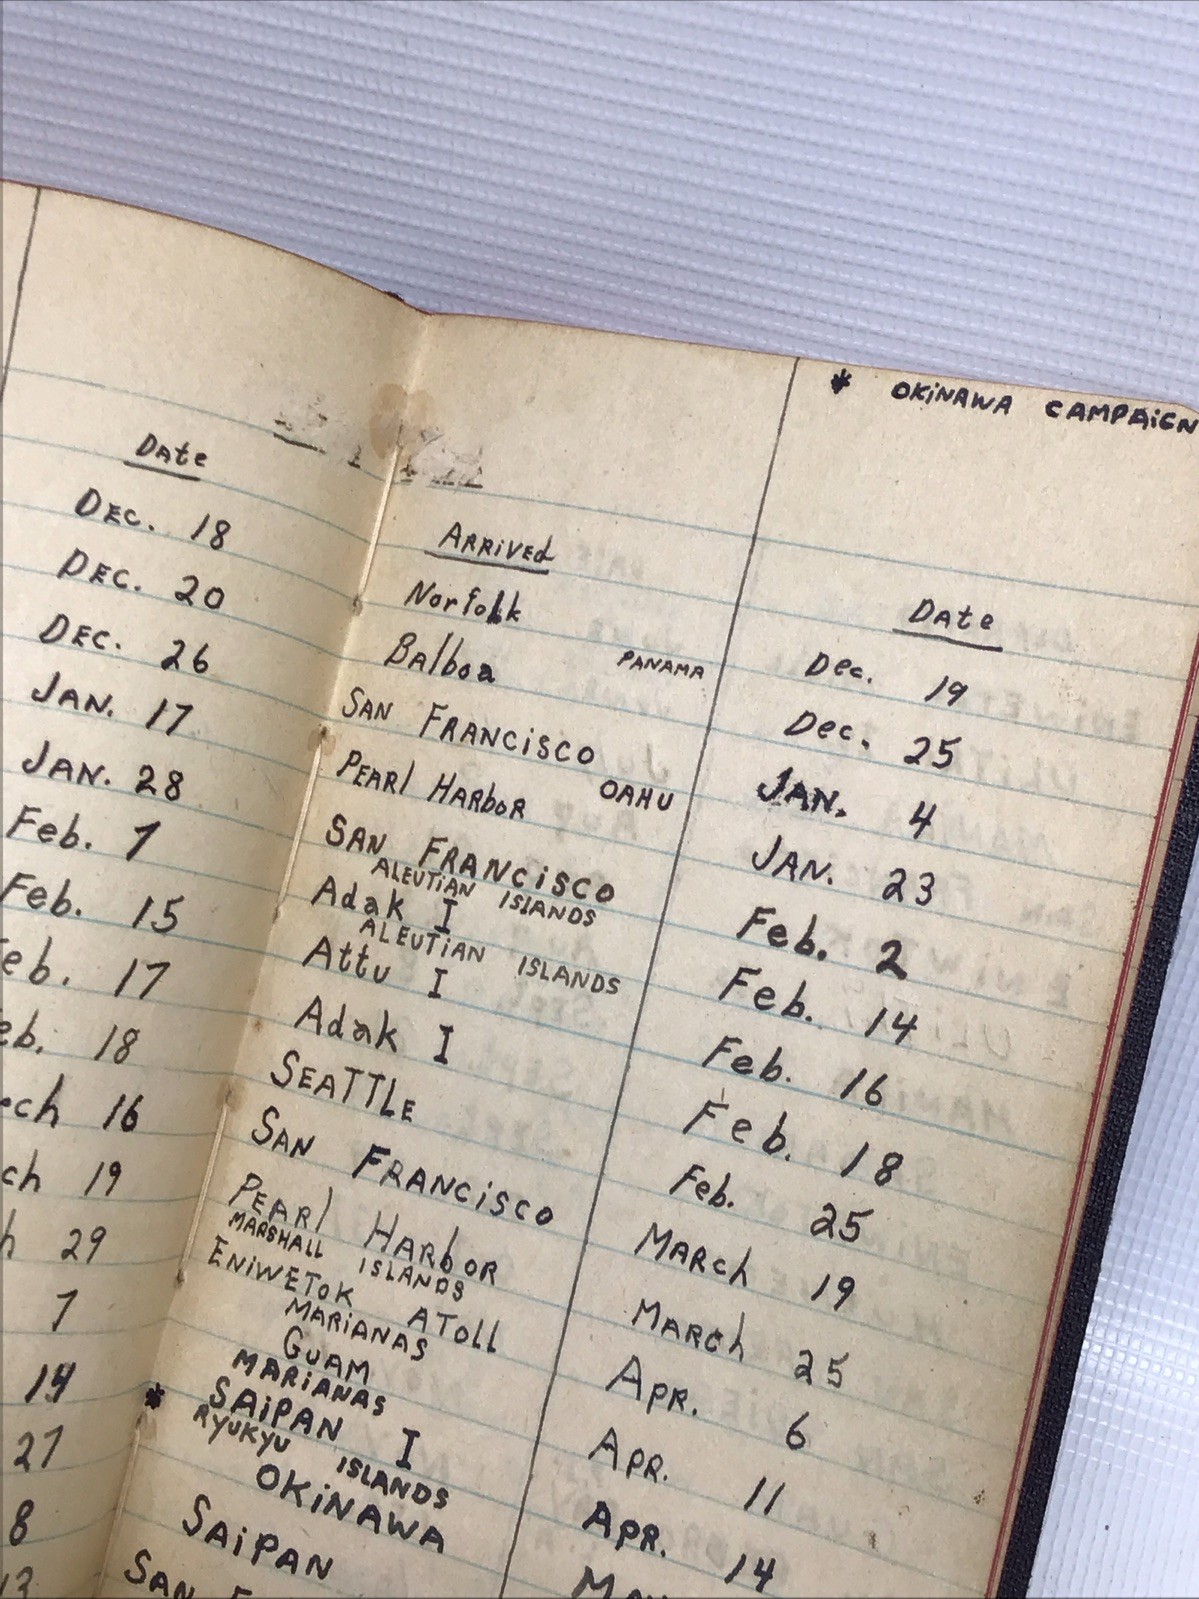 * OKINAWA CAMPAIGN
Date
DEC. 18
DEC. 20
DEC. 26
JAN. 17
JAN. 28
Feb. 1
Feb. 15
eb. 17
eb. 18
ch 16
ch 19
h 29
7
14
27
8
13
ARRIVED Date
Norfolk Dec. 19
Balboa PANAMA Dec. 25
SAN FRANCISCO JAN. 4
PEARL HARBOR OAHU JAN. 23
SAN FRANCISCO Feb. 2
ALEUTIAN ISLANDS
Adak I Feb. 14
ALEUTIAN ISLANDS
Attu I Feb. 16
Adak I Feb. 18
SEATTLE Feb. 25
SAN FRANCISCO MARCH 19
PEARL HARBOR MARCH 25
MARSHALL ISLANDS
ENIWETOK ATOLL APR. 6
MARIANAS
GUAM APR. 11
MARIANAS
SAIPAN I APR. 14
RYUKYU ISLANDS
* OKINAWA
SAIPAN
SAN